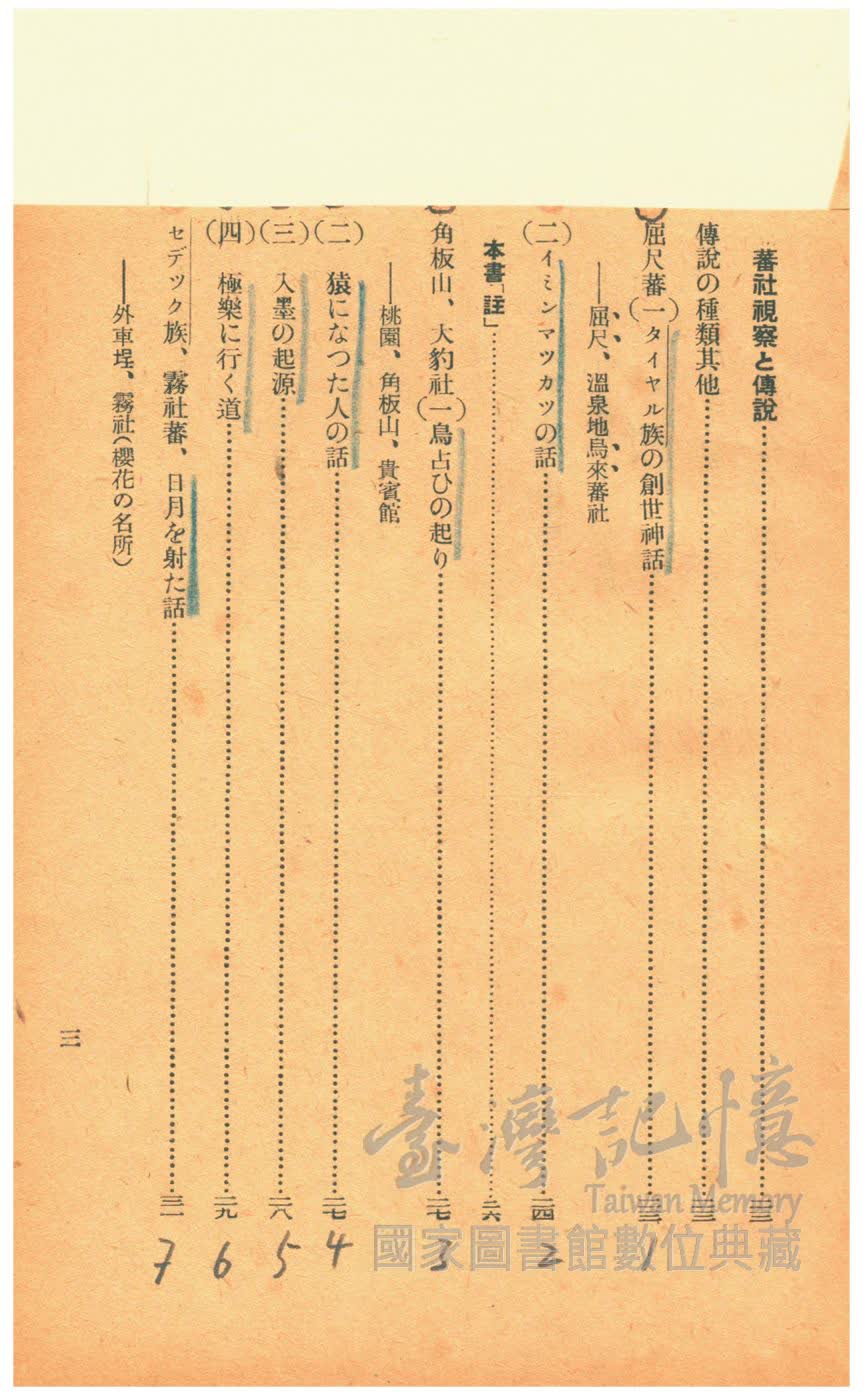 蕃社視察と傳說……二三
傳說の種類其他……二三
屈尺蕃(一)タイヤル族の創世神話……二三
――屈尺、溫泉地烏來蕃社
(二)イミンマツカツの話……二四
本書「註」……二六
角板山、大豹社(一)鳥占ひの起り……二七
――桃園、角板山、貴賓館
(二)猿になつた人の話……二七
(三)入墨の起源……二八
(四)極樂に行く道……二九
セデツク族、霧社蕃、日月を射た話……三一
――外車埕、霧社(櫻花の名所)
三
1
2
3
4
5
6
7
臺灣記憶
Taiwan Memory
國家圖書館數位典藏